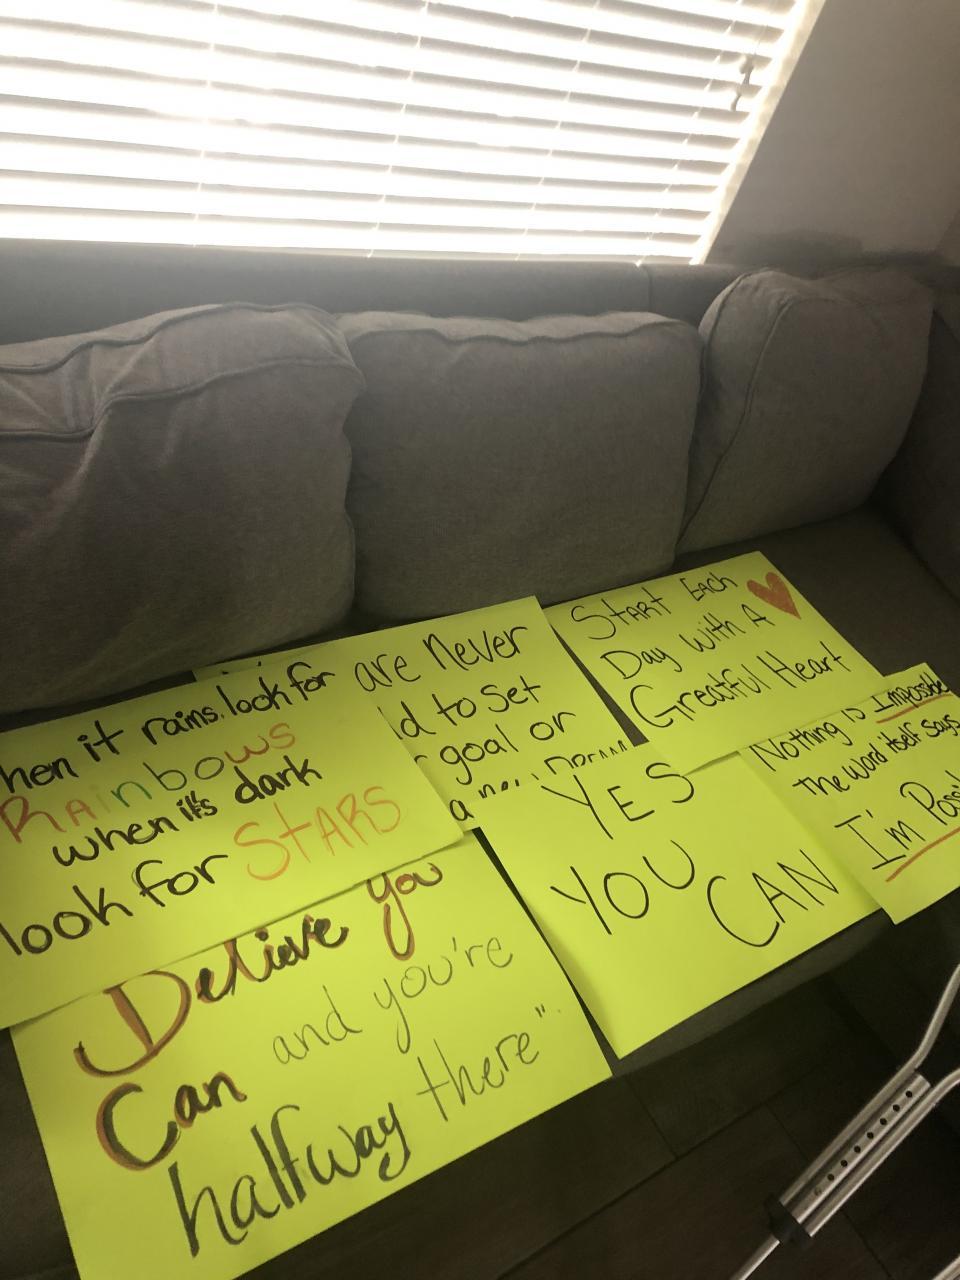 hen it rains, look for
Rainbows
when it's dark
look for STARS
are Never
d to set
r goal or
a
Start Each
Day With A
Greatful Heart
Nothing is Impossible
the word itself says
I'm Poss
YES
YOU
CAN
Believe you
Can and you're
halfway there"